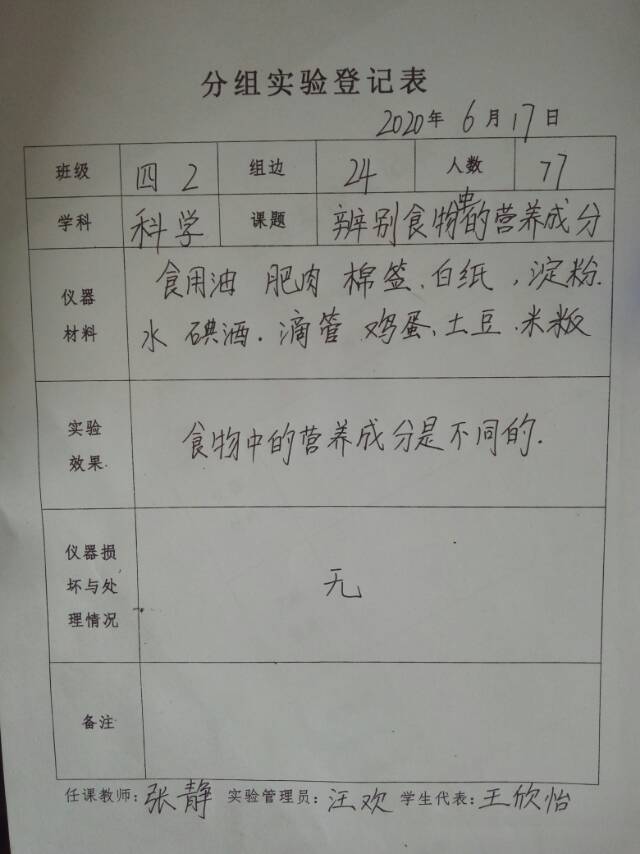 分组实验登记表
2020年 6月17日
班级 四2 组边 24 人数 77
学科 科学 课题 辨别食物中的营养成分
仪器材料 食用油 肥肉 棉签、白纸,淀粉.
水 碘酒.滴管 鸡蛋、土豆.米粄
实验效果 食物中的营养成分是不同的.
仪器损坏与处理情况 无
备注
任课教师:张静 实验管理员:汪欢 学生代表:王欣怡